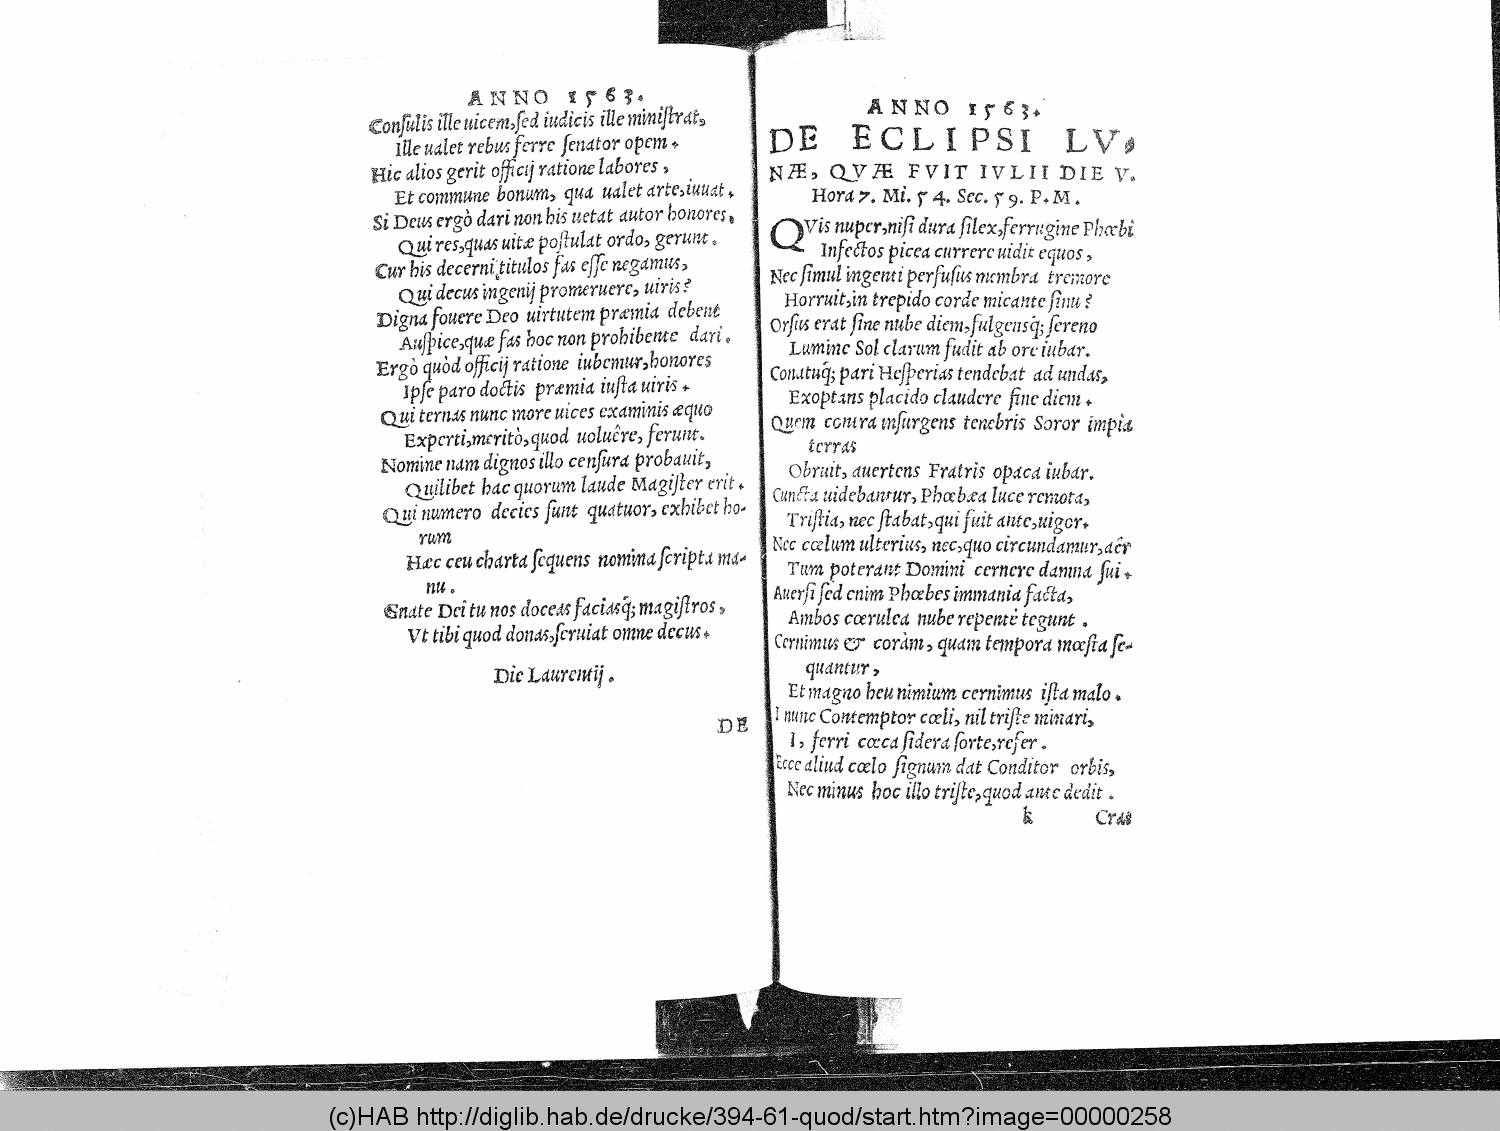 ANNO 1563.
Conſulis ille uicem, ſed iudicis ille miniſtrat,
Ille ualet rebus ferre ſenator opem.
Hic alios gerit officij ratione labores,
Et commune bonum, qua ualet arte, iuuat.
Si Deus ergò dari non his uetat autor honores,
Qui res, quas uitæ poſtulat ordo, gerunt.
Cur his decerni titulos fas eſſe negamus,
Qui decus ingenij promeruere, uiris?
Digna fouere Deo uirtutem præmia debent
Auſpice, quæ fas hoc non prohibente dari.
Ergò quòd officij ratione iubemur, honores
Ipſe paro doctis præmia iuſta uiris.
Qui ternas nunc more uices examinis æquo
Experti, meritò, quod uoluêre, ferunt.
Nomine nam dignos illo cenſura probauit,
Quilibet hac quorum laude Magiſter erit.
Qui numero decies ſunt quatuor, exhibet ho-
rum
Hæc ceu charta ſequens nomina ſcripta ma-
nu.
Gnate Dei tu nos doceas faciasq́; magiſtros,
Vt tibi quod donas, ſeruiat omne decus.
Die Laurentij.
DE
ANNO 1563.
DE ECLIPSI LV-
NÆ, QVÆ FVIT IVLII DIE V.
Hora 7. Mi. 54. Sec. 59. P. M.
QVis nuper, niſi dura ſilex, ferrugine Phœbi
Infectos picea currere uidit equos,
Nec ſimul ingenti perfuſus membra tremore
Horruit, in trepido corde micante ſinu?
Orſus erat ſine nube diem, fulgensq́; ſereno
Lumine Sol clarum fudit ab ore iubar.
Conatuq́; pari Heſperias tendebat ad undas,
Exoptans placido claudere fine diem.
Quem contra inſurgens tenebris Soror impia
terras
Obruit, auertens Fratris opaca iubar.
Cuncta uidebantur, Phœbæa luce remota,
Triſtia, nec ſtabat, qui fuit ante, uigor.
Nec cœlum ulterius, nec, quo circundamur, aër
Tum poterant Domini cernere damna ſui.
Auerſi ſed enim Phœbes immania facta,
Ambos cœrulea nube repentè tegunt.
Cernimus & coràm, quam tempora mœſta ſe-
quantur,
Et magno heu nimium cernimus iſta malo.
I nunc Contemptor cœli, nil triſte minari,
I, ferri cœca ſidera ſorte, refer.
Ecce aliud cœlo ſignum dat Conditor orbis,
Nec minus hoc illo triſte, quod ante dedit.
k Cras
(c)HAB http://diglib.hab.de/drucke/394-61-quod/start.htm?image=00000258